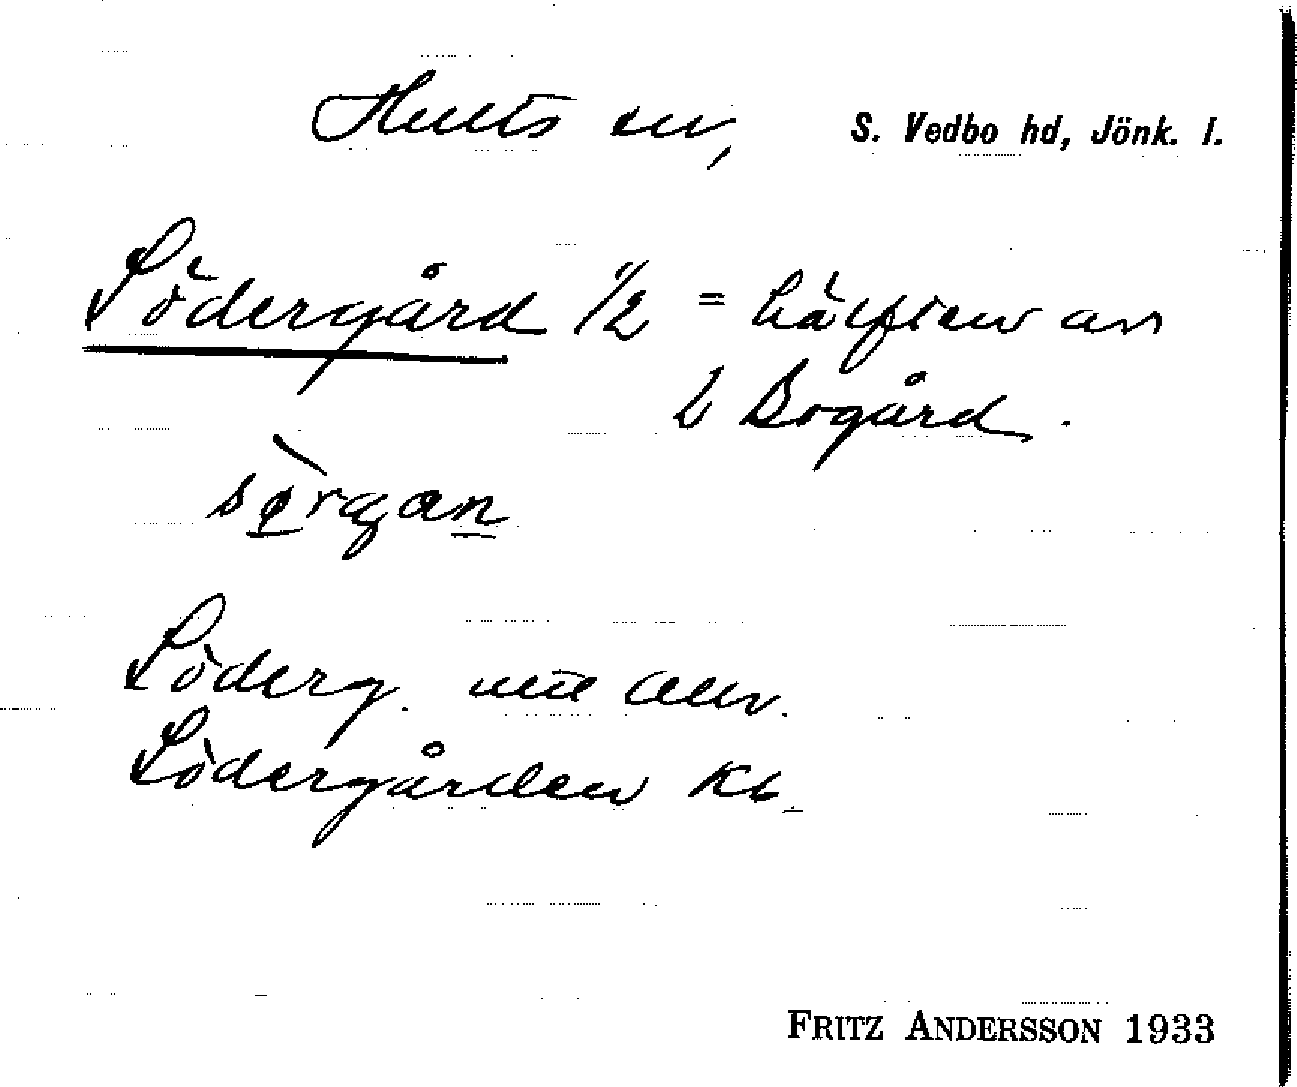 Hults sn, S. Vedbo hd, Jönk. l.
Södergård 1/2 = hälften av
2 Bogård.
sørgan
Söderg. mtl allm.
Södergården Kb.
FRITZ ANDERSSON 1933